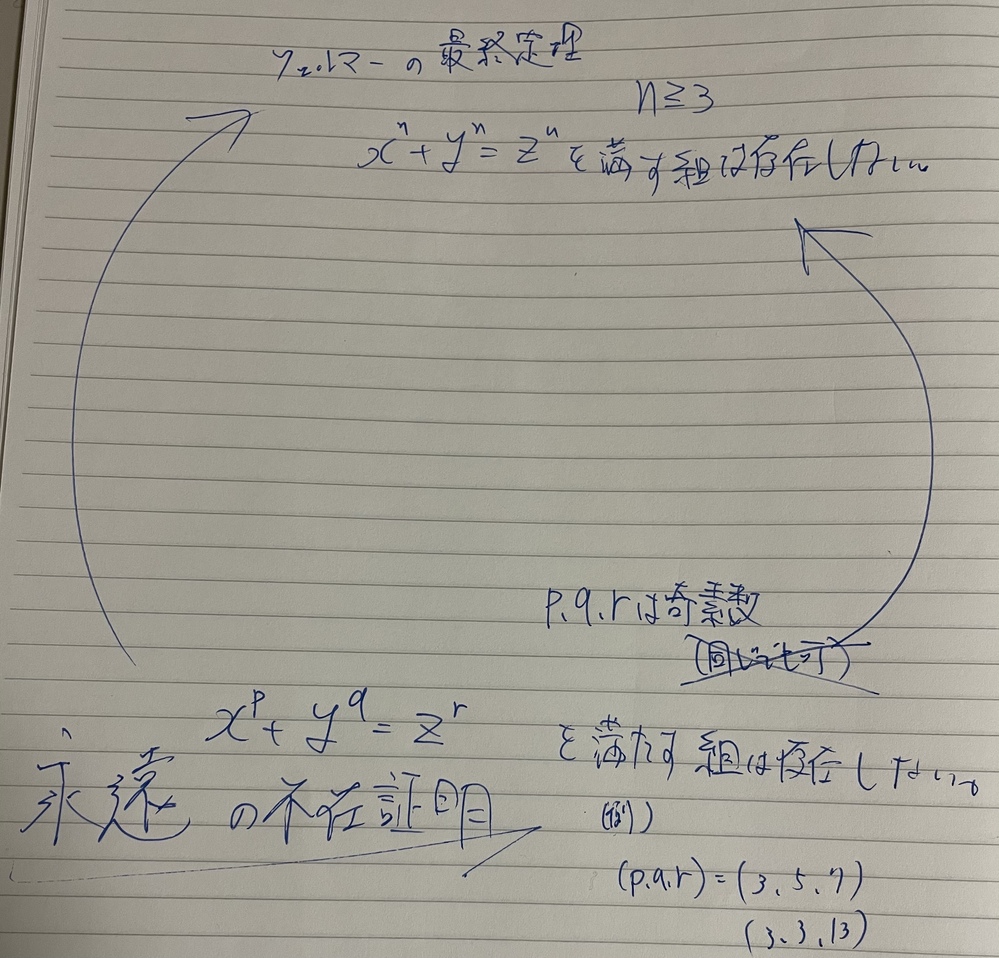 フェルマーの最終定理
n≧3
xⁿ+yⁿ=zⁿを満す組は存在しない。
p.q.rは奇素数
(同じでも可)
x^p+y^q=z^r を満たす組は存在しない。
永遠の不在証明
(例)
(p.q.r)=(3.5.7)
(3.3.13)